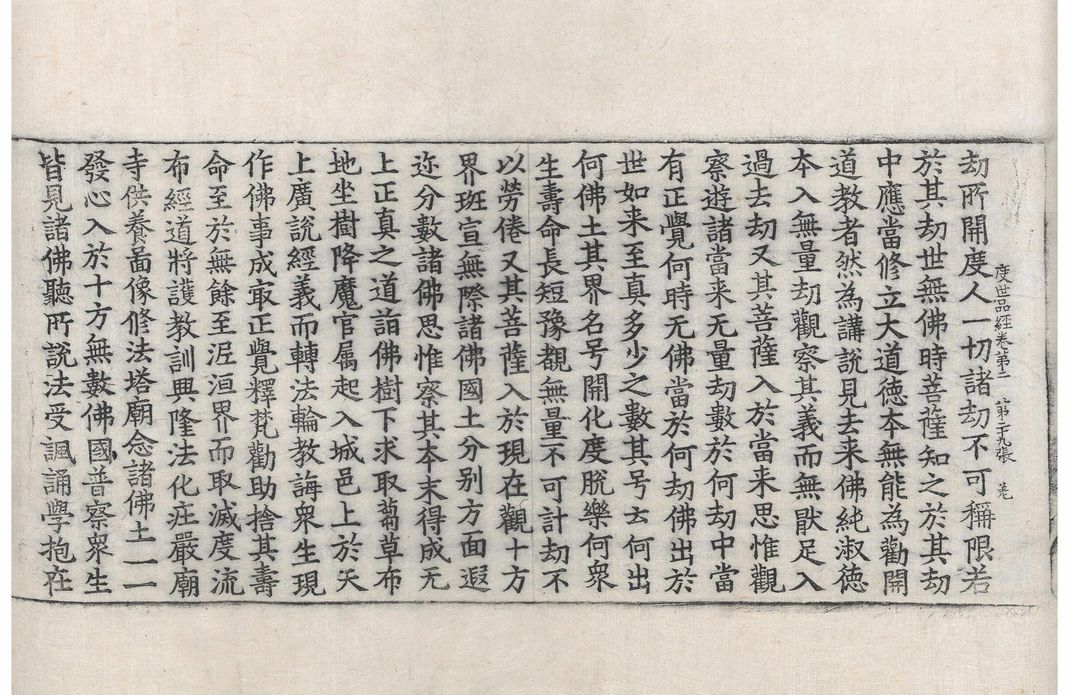 度世品經卷第二 第二九張 羌
劫所開度人一切諸劫不可稱限若
於其劫世無佛時菩薩知之於其劫
中應當修立大道徳本無能為勸開
道教者然為講說見去来佛純淑徳
本入無量劫觀察其義而無猒足入
過去劫又其菩薩入於當来思惟觀
察遊諸當来无量劫數於何劫中當
有正覺何時无佛當於何劫佛出於
世如来至真多少之數其号云何出
何佛土其界名号開化度脫樂何衆
生壽命長短豫觀無量不可計劫不
以勞倦又其菩薩入於現在觀十方
界班宣無際諸佛國土分别方面遐
迩分數諸佛思惟察其本末得成无
上正真之道詣佛樹下求取蒭草布
地坐樹降魔官属起入城邑上於天
上廣說經義而轉法輪教誨衆生現
作佛事成㝡正覺釋梵勸助捨其壽
命至於無餘至泥洹界而取滅度流
布經道將護教訓興隆法化庄嚴廟
寺供養啚像修法塔廟念諸佛土一一
發心入於十方無數佛國普察衆生
皆見諸佛聽所說法受諷誦學抱在